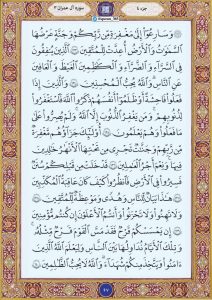 جزء ٤
سورة آل عمران ٣
وَسَارِعُوٓا۟ إِلَىٰ مَغْفِرَةٍ مِّن رَّبِّكُمْ وَجَنَّةٍ عَرْضُهَا
ٱلسَّمَٰوَٰتُ وَٱلْأَرْضُ أُعِدَّتْ لِلْمُتَّقِينَ ١٣٣ ٱلَّذِينَ يُنفِقُونَ
فِى ٱلسَّرَّآءِ وَٱلضَّرَّآءِ وَٱلْكَٰظِمِينَ ٱلْغَيْظَ وَٱلْعَافِينَ
عَنِ ٱلنَّاسِ وَٱللَّهُ يُحِبُّ ٱلْمُحْسِنِينَ ١٣٤ وَٱلَّذِينَ إِذَا
فَعَلُوا۟ فَٰحِشَةً أَوْ ظَلَمُوٓا۟ أَنفُسَهُمْ ذَكَرُوا۟ ٱللَّهَ فَٱسْتَغْفَرُوا۟
لِذُنُوبِهِمْ وَمَن يَغْفِرُ ٱلذُّنُوبَ إِلَّا ٱللَّهُ وَلَمْ يُصِرُّوا۟ عَلَىٰ
مَا فَعَلُوا۟ وَهُمْ يَعْلَمُونَ ١٣٥ أُو۟لَٰٓئِكَ جَزَآؤُهُم مَّغْفِرَةٌ
مِّن رَّبِّهِمْ وَجَنَّٰتٌ تَجْرِى مِن تَحْتِهَا ٱلْأَنْهَٰرُ خَٰلِدِينَ
فِيهَا وَنِعْمَ أَجْرُ ٱلْعَٰمِلِينَ ١٣٦ قَدْ خَلَتْ مِن قَبْلِكُمْ سُنَنٌ
فَسِيرُوا۟ فِى ٱلْأَرْضِ فَٱنظُرُوا۟ كَيْفَ كَانَ عَٰقِبَةُ ٱلْمُكَذِّبِينَ
١٣٧ هَٰذَا بَيَانٌ لِّلنَّاسِ وَهُدًى وَمَوْعِظَةٌ لِّلْمُتَّقِينَ ١٣٨
وَلَا تَهِنُوا۟ وَلَا تَحْزَنُوا۟ وَأَنتُمُ ٱلْأَعْلَوْنَ إِن كُنتُم مُّؤْمِنِينَ
١٣٩ إِن يَمْسَسْكُمْ قَرْحٌ فَقَدْ مَسَّ ٱلْقَوْمَ قَرْحٌ مِّثْلُهُۥ
وَتِلْكَ ٱلْأَيَّامُ نُدَاوِلُهَا بَيْنَ ٱلنَّاسِ وَلِيَعْلَمَ ٱللَّهُ ٱلَّذِينَ
ءَامَنُوا۟ وَيَتَّخِذَ مِنكُمْ شُهَدَآءَ وَٱللَّهُ لَا يُحِبُّ ٱلظَّٰلِمِينَ ١٤٠
٦٧